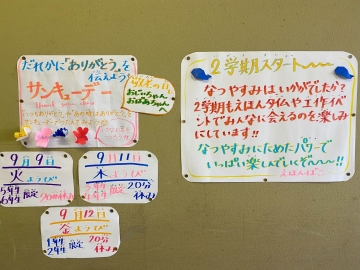 だれかに「ありがとう」を
伝えよう
サンキューデー
おじいちゃん
おばあちゃん
へ
9月9日
火ようび
5年生 限定
6年生
20分休み
9月11日
木ようび
限定
20分
休み
9月12日
金ようび
1年生
2年生 限定
20分
休み
2学期スタート〜〜
なつやすみは、いかがでしたか?
2学期もえほんタイムや工作イベ
ントでみんなに会えるのを楽しみ
にしています!!
なつやすみにためたパワーで
いっぱい楽しんでいこぞ〜〜〜!!